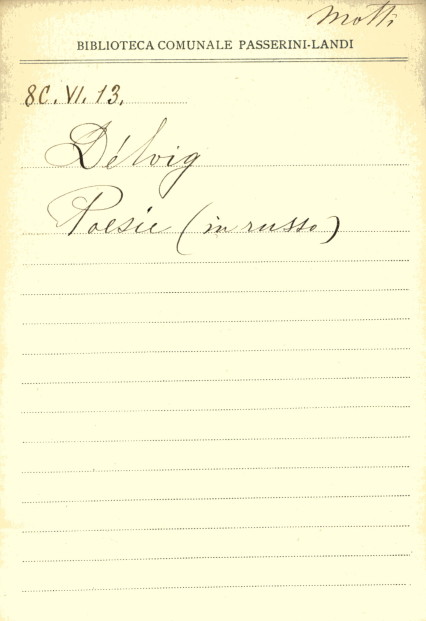 Motti
BIBLIOTECA COMUNALE PASSERINI-LANDI
8C. VI. 13.
Délvig
Poesie (in russo)